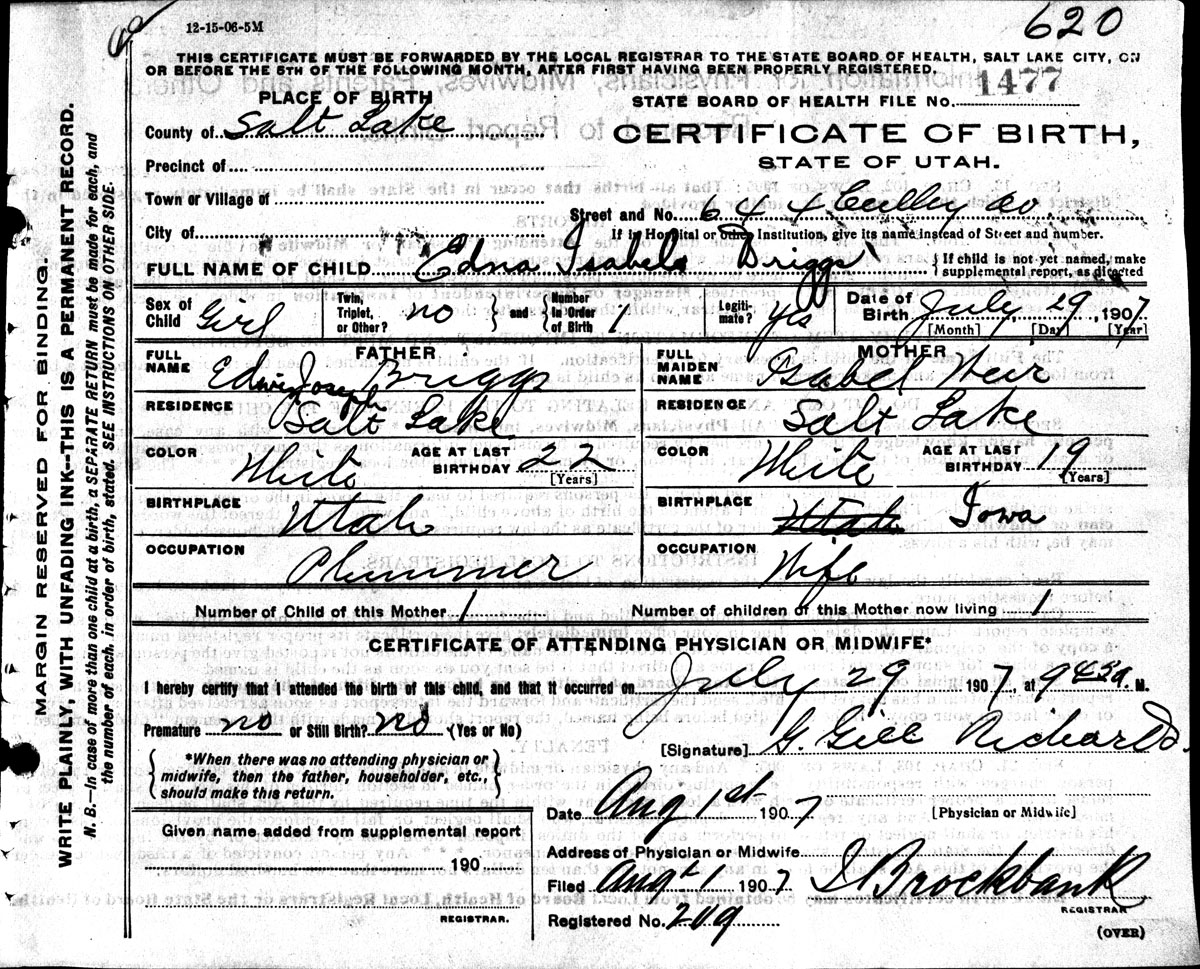 12-15-06-5M
620
THIS CERTIFICATE MUST BE FORWARDED BY THE LOCAL REGISTRAR TO THE STATE BOARD OF HEALTH, SALT LAKE CITY, ON
OR BEFORE THE 5TH OF THE FOLLOWING MONTH, AFTER FIRST HAVING BEEN PROPERLY REGISTERED.
PLACE OF BIRTH
STATE BOARD OF HEALTH FILE NO. 1477
County of Salt Lake
CERTIFICATE OF BIRTH,
STATE OF UTAH.
Precinct of
Town or Village of
Street and No.
City of
If in Hospital or other Institution, give its name instead of Street and number.
FULL NAME OF CHILD Edna Isabele Briggs
If child is not yet named, make
supplemental report, as directed
Sex of Child Girl
Twin, Triplet, or Other? no
and
Number In Order of Birth 1
Legiti- mate? yes
Date of Birth July 29 1907
[Month] [Day] [Year]
FATHER
FULL NAME Edwin Joseph Briggs
RESIDENCE Salt Lake
COLOR White AGE AT LAST BIRTHDAY 22
[Years]
BIRTHPLACE Utah
OCCUPATION Plummer
MOTHER
FULL MAIDEN NAME Isabel Weir
RESIDENCE Salt Lake
COLOR White AGE AT LAST BIRTHDAY 19
[Years]
BIRTHPLACE Utah Iowa
OCCUPATION Wife
Number of Child of this Mother 1 Number of children of this Mother now living 1
CERTIFICATE OF ATTENDING PHYSICIAN OR MIDWIFE*
I hereby certify that I attended the birth of this child, and that it occurred on July 29 1907, at 9 43 a. M.
Premature no or Still Birth? no (Yes or No)
[Signature] G. Gill Richards
*When there was no attending physician or
midwife, then the father, householder, etc.,
should make this return.
Date Aug 1st 1907 [Physician or Midwife]
Given name added from supplemental report
190
REGISTRAR.
Address of Physician or Midwife
Filed Aug 1 1907 Brockbank
REGISTRAR
Registered No. 209
(OVER)
MARGIN RESERVED FOR BINDING.
WRITE PLAINLY, WITH UNFADING INK—THIS IS A PERMANENT RECORD.
N. B.—In case of more than one child at a birth, a SEPARATE RETURN must be made for each, and
the number of each, in order of birth, stated. SEE INSTRUCTIONS ON OTHER SIDE.